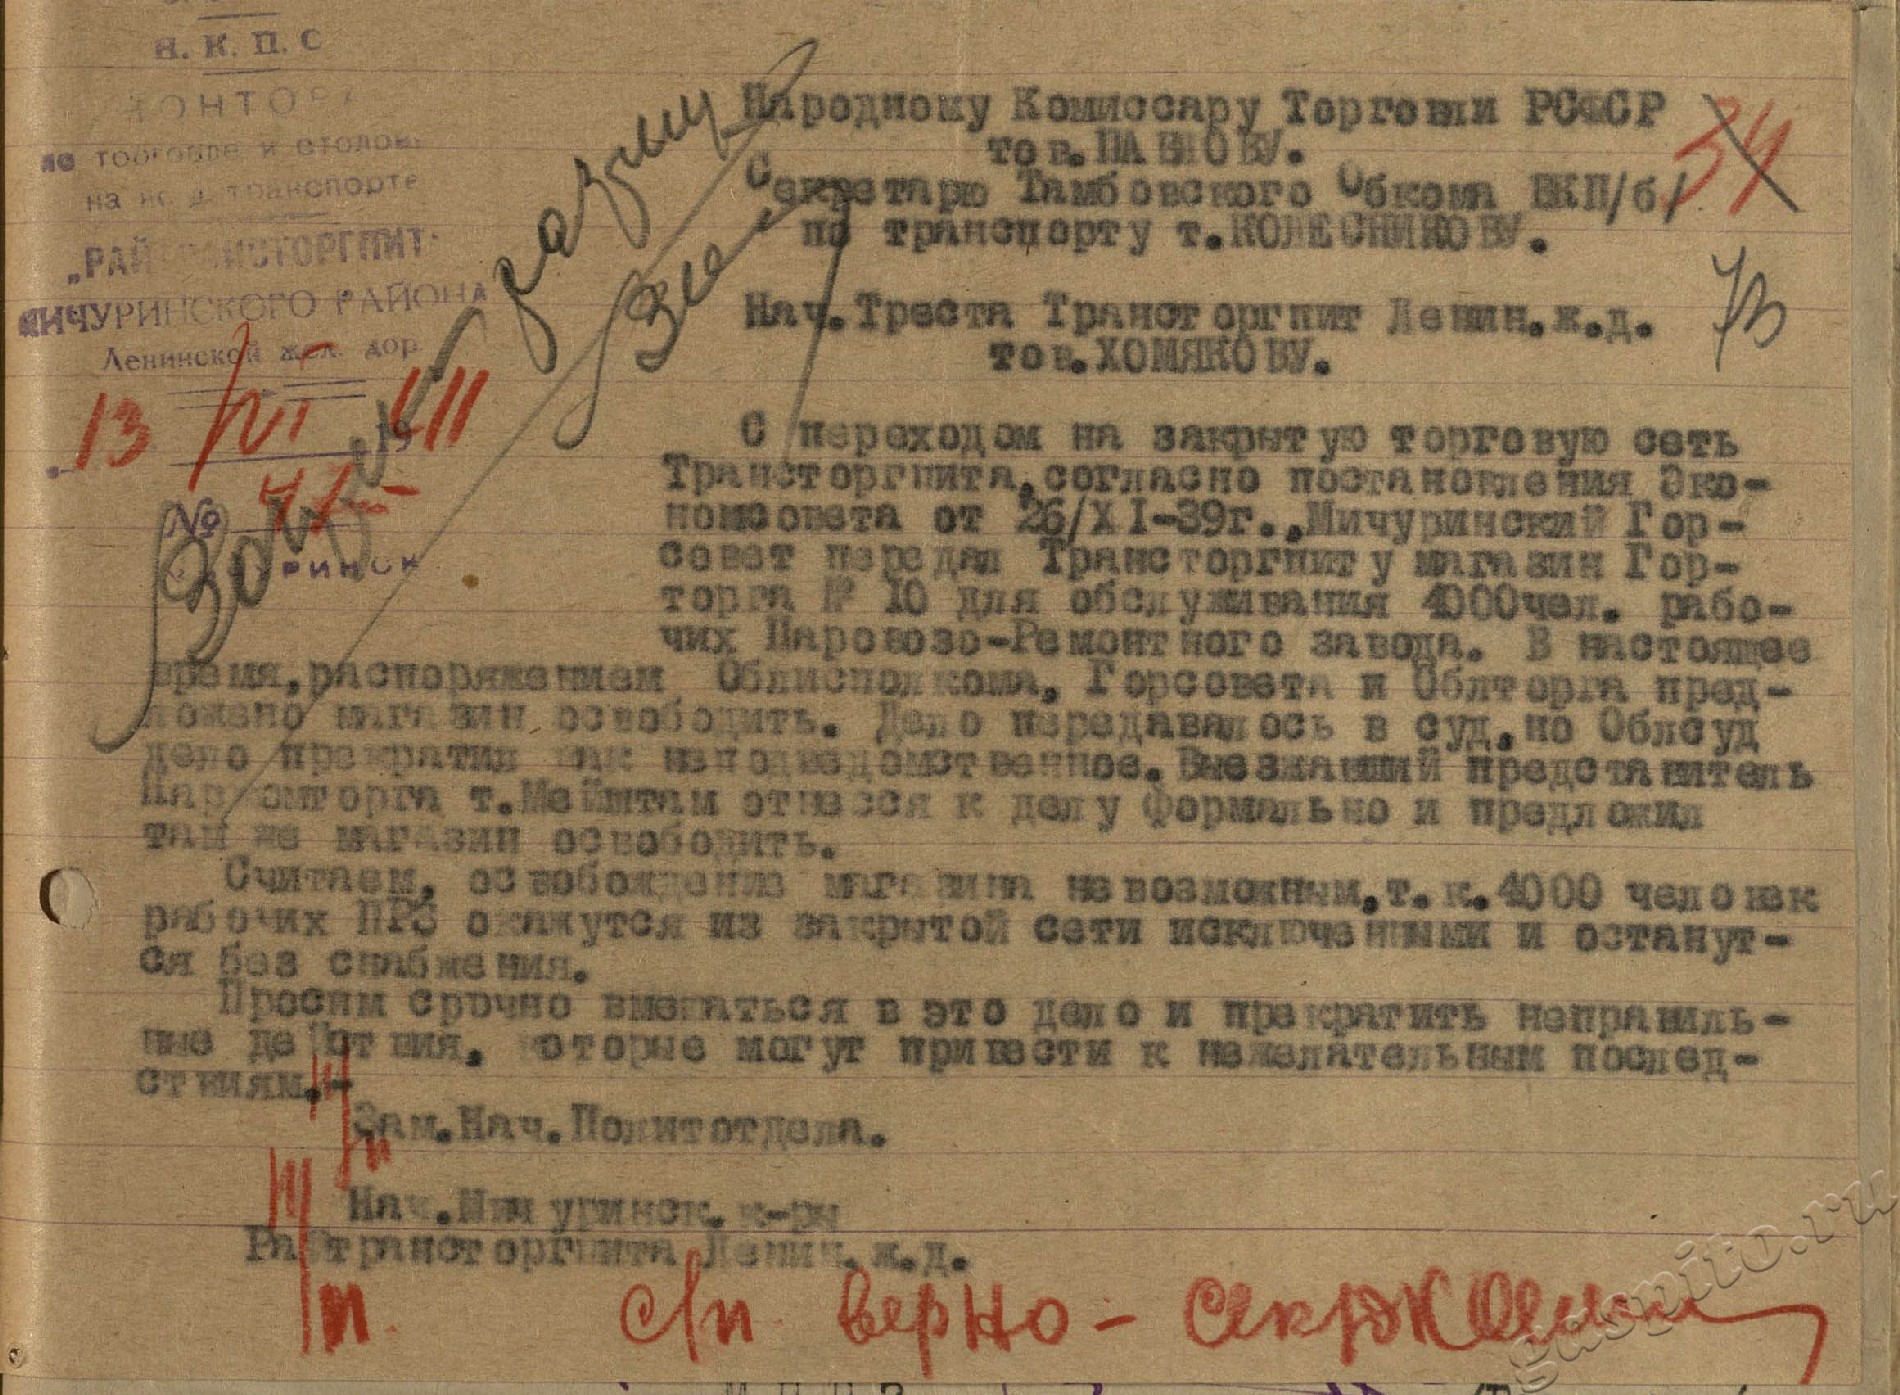 Н. К. П. С
КОНТОРА
по торговле и столов
на ж. д. транспорте
„РАЙТРАНСТОРГПИТ"
МИЧУРИНСКОГО РАЙОНА
Ленинской жел. дор.
13
19
№ 71
Народному Комиссару Торговли РСФСР
тов.ПАВЛОВУ.
Секретарю Тамбовского Обкома ВКП/б/
по транспорту т.КОЛЕСНИКОВУ.
34
73
Нач.Треста Трансторгпит Ленин.ж.д.
тов.ХОМЯКОВУ.
С переходом на закрытую торговую сеть
Трансторгпита,согласно постановления Эко-
номсовета от 26/XI-39г.,Мичуринский Гор-
совет передал Трансторгпиту магазин Гор-
торга № 10 для обслуживания 4000чел. рабо-
чих Паровозо-Ремонтного завода. В настоящее
время,распоряжением Облисполкома, Горсовета и Облторга пред-
ложено магазин освободить. Дело передавалось в суд,но Облсуд
дело прекратил как неподведомственное.Выезжавший представитель
Наркомторга т.Мейштам отнесся к делу формально и предложил
так же магазин освободить.
Считаем, освобождение магазина невозможным,т.к.4000 человек
рабочих ПРЗ окажутся из закрытой сети исключенными и останут-
ся без снабжения.
Просим срочно вмешаться в это дело и прекратить неправиль-
ные действия, которые могут привести к нежелательным послед-
ствиям.-
Зам.Нач.Политотдела.
Нач.Мичуринск.к-ры
Райтрансторгпита Ленин.ж.д.
п. с/п верно -
gaspito.ru